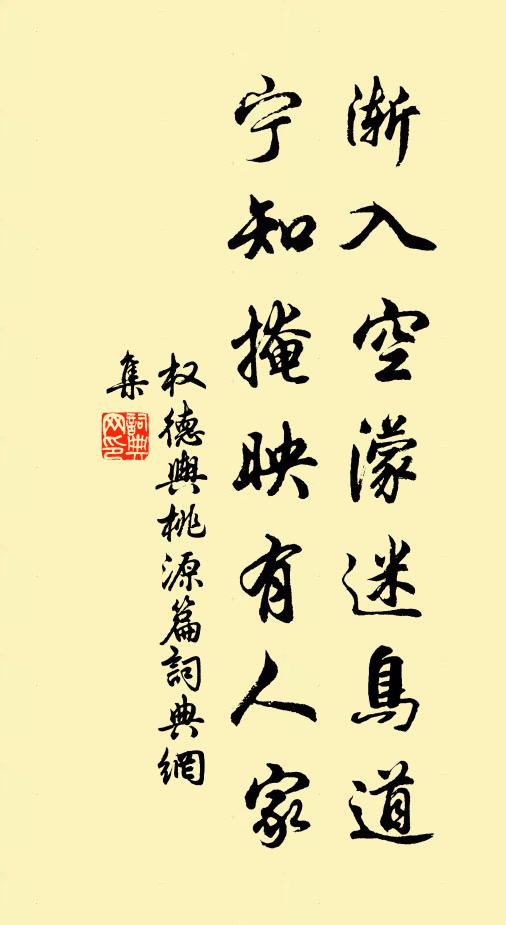 渐入空濛迷鸟道
宁知掩映有人家
权德舆桃源篇詞典網
集
詞典
网印